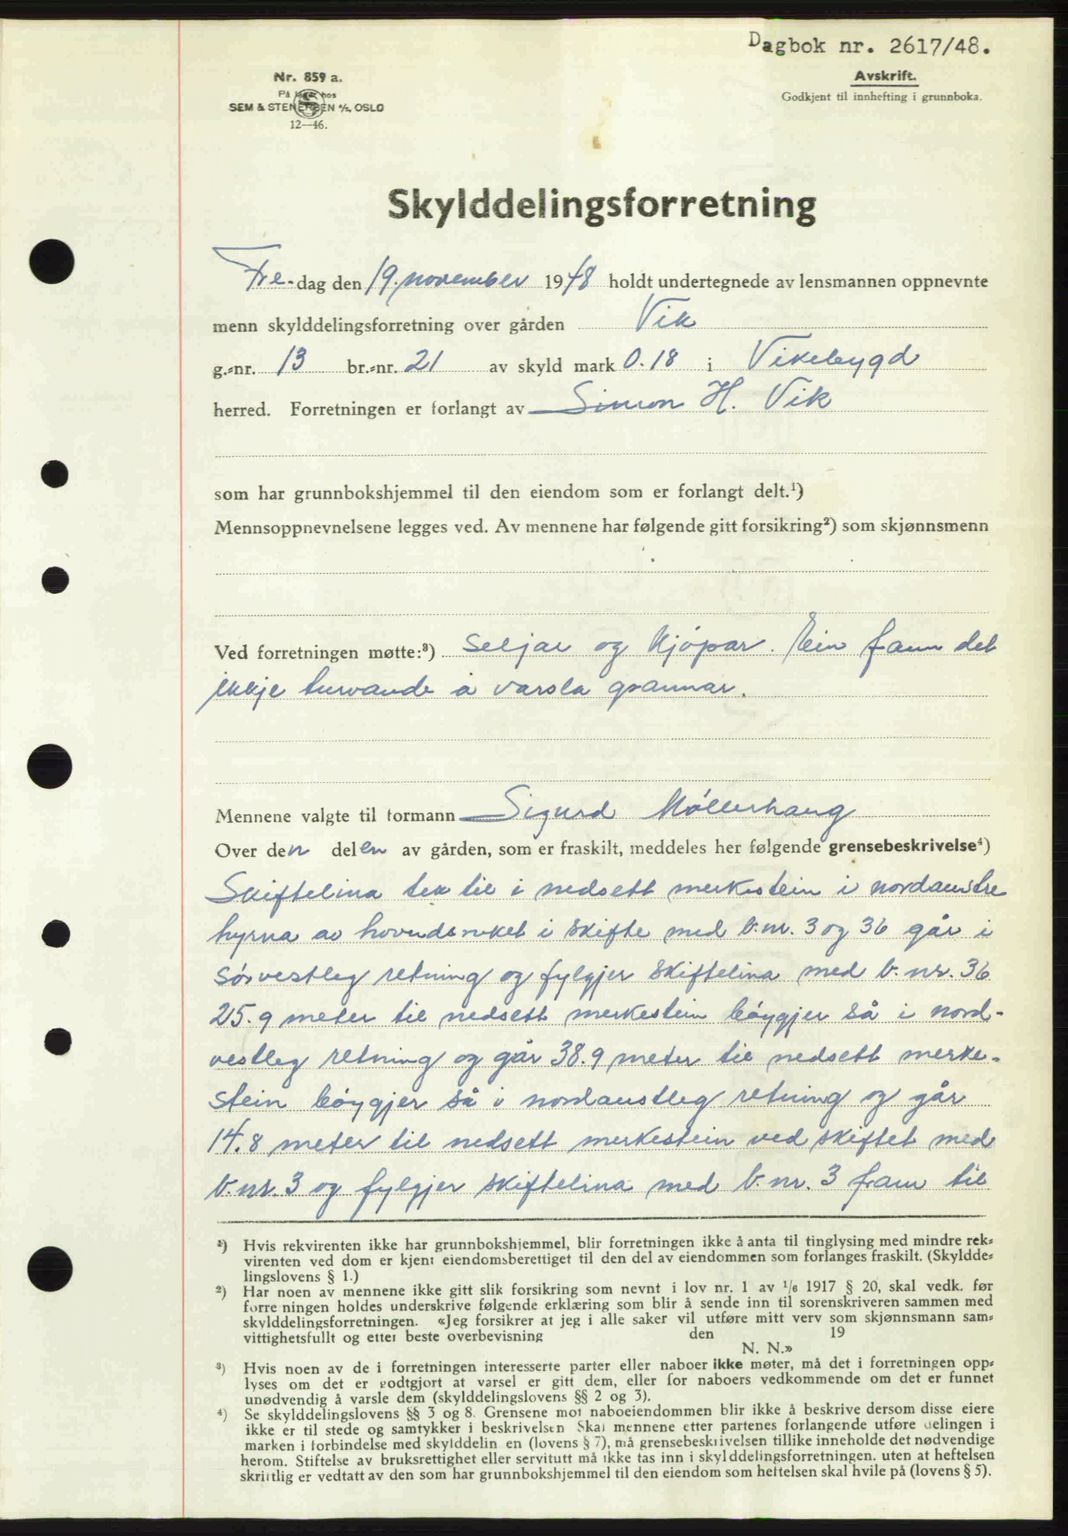 Dagbok nr. 2617/48.
Avskrift.
Godkjent til innhefting i grunnboka.
Nr. 859 a.
På lager hos
SEM & STENERSEN A/S, OSLO
12—46.
Skylddelingsforretning
Fre-dag den 19. november 1948 holdt undertegnede av lensmannen oppnevnte
menn skylddelingsforretning over gården Vik
g.-nr. 13 br.-nr. 21 av skyld mark 0.18 i Vikebygd
herred. Forretningen er forlangt av Simon H. Vik
som har grunnbokshjemmel til den eiendom som er forlangt delt.¹)
Mennsoppnevnelsene legges ved. Av mennene har følgende gitt forsikring²) som skjønnsmenn
Ved forretningen møtte:³) Seljar og Kjöpar. Ein fann det
ikkje turvande å varsla grannar.
Mennene valgte til formann Sigurd Möllerhaug
Over den delen av gården, som er fraskilt, meddeles her følgende grensebeskrivelse⁴)
Skiftelina tek til i nedsett merkestein i nordaustre
hyrna av hovudbruket i skifte med b.nr. 3 og 36 går i
sörvestleg retning og fylgjer skiftelina med b.nr. 36
25.9 meter til nedsett merkestein böygjer så i nord-
vestleg retning og går 38.9 meter til nedsett merke-
stein böygjer så i nordaustleg retning og går
14.8 meter til nedsett merkestein ved skiftet med
b.nr. 3 og fylgjer skiftelina med b.nr. 3 fram til
¹) Hvis rekvirenten ikke har grunnbokshjemmel, blir forretningen ikke å anta til tinglysing med mindre rek-
virenten ved dom er kjent eiendomsberettiget til den del av eiendommen som forlanges fraskilt. (Skyldde-
lingslovens § 1.)
²) Har noen av mennene ikke gitt slik forsikring som nevnt i lov nr. 1 av 1/6 1917 § 20, skal vedk. før
forretningen holdes underskrive følgende erklæring som blir å sende inn til sorenskriveren sammen med
skylddelingsforretningen. «Jeg forsikrer at jeg i alle saker vil utføre mitt verv som skjønnsmann sam-
vittighetsfullt og etter beste overbevisning den 19
N. N.»
³) Hvis noen av de i forretningen interesserte parter eller naboer ikke møter, må det i forretningen opp-
lyses om det er godtgjort at varsel er gitt dem, eller for naboers vedkommende om det er funnet
unødvendig å varsle dem (skylddelingslovens §§ 2 og 3).
⁴) Se skylddelingslovens §§ 3 og 8. Grensene mot naboeiendommen blir ikke å beskrive dersom disse eiere
ikke er til stede og samtykker i beskrivelsen Skal mennene etter partenes forlangende utføre delingen i
marken i forbindelse med skylddelingen (lovens § 7), må grensebeskrivelsen tillike inneholde det nødvendige
herom. Stiftelse av bruksrettighet eller servitutt må ikke tas inn i skylddelingsforretningen. uten at heftelsen
skriftlig er vedtatt av den som har grunnbokshjemmel til den eiendom som heftelsen skal hvile på (lovens § 5).